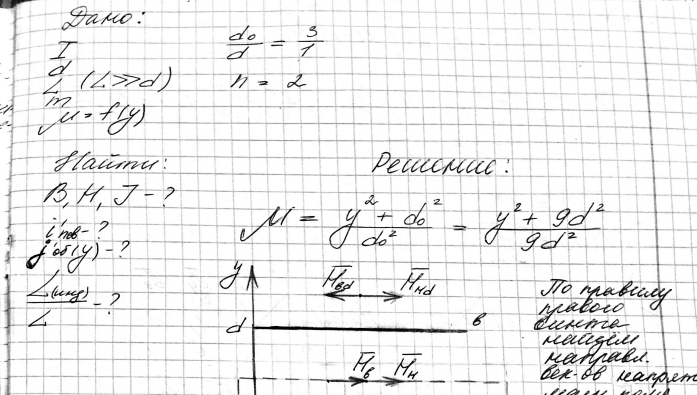 Дано:
I
d
L (L >> d)
m
μ = f(y)
d₀/d = 3/1
n = 2
Найти:
B, H, J - ?
i'пов - ?
j'об(y) - ?
L(инд)/L - ?
Решение:
μ = (y² + d₀²)/d₀² = (y² + 9d²)/9d²
y
H̅вd H̅нd
d
в
H̅в H̅н
По правилу
правого
винта
найдём
направл.
век-ов напряж